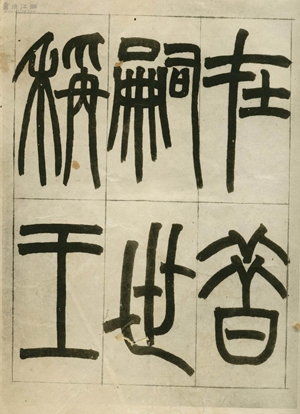 在昔
嗣世
稱王